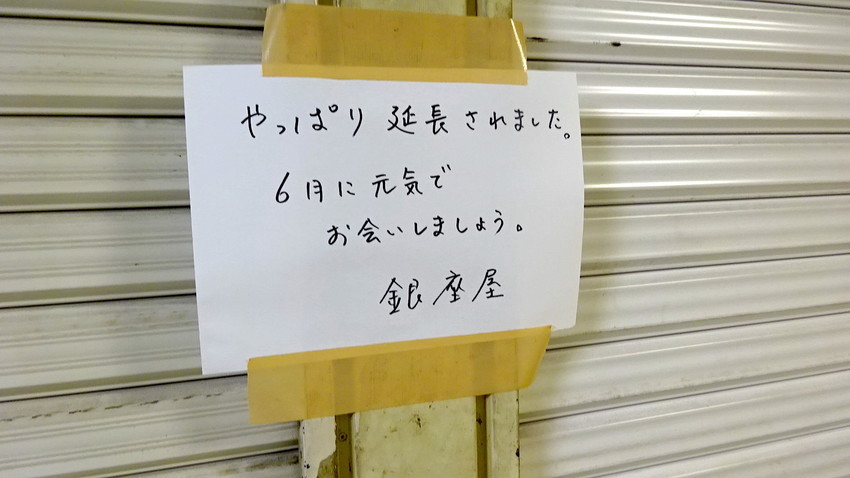 やっぱり 延長されました。
6月に元気で
お会いしましょう。
銀座屋